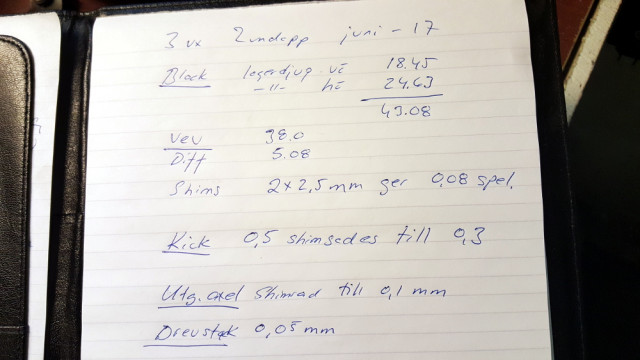 3 vx Zundapp juni - 17
Block lagerdjup vä 18.45
-11- hö 24.63
43.08
Vev 38.0
Diff 5.08
Shims 2x2,5mm ger 0,08 spel.
Kick 0,5 shimsades till 0,3
Utg. axel shimsad till 0,1 mm
Drevstack 0,05 mm